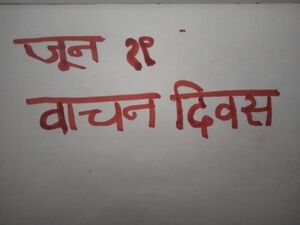 जून १९
वाचन दिवस